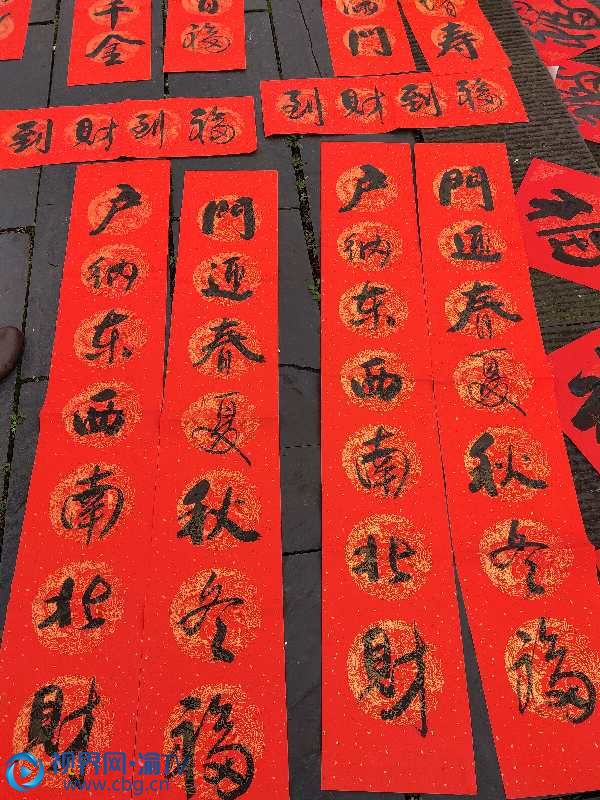 壽
門
福
千金
福到財到
福到財到
門迎春夏秋冬福
户纳东西南北財
門迎春夏秋冬福
户纳东西南北財
福
视界网·渝TV
www.cbg.cn